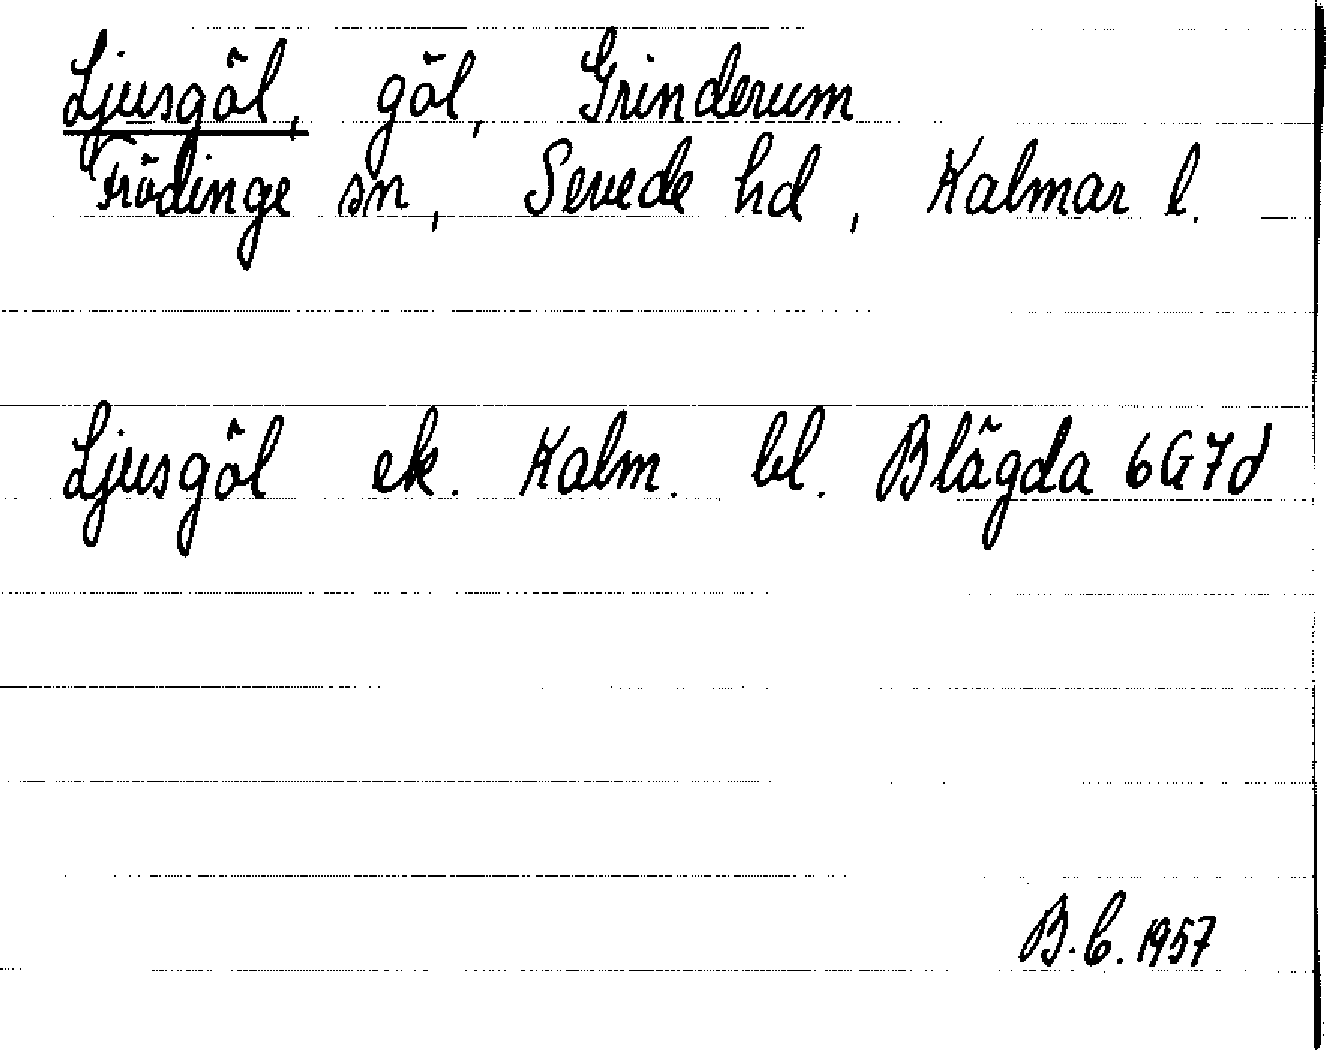 Ljusgöl, göl, Grinderum
Frödinge sn, Sevede hd, Kalmar l.
Ljusgöl ek. Kalm. bl. Blägda 6G7d
B.C. 1957